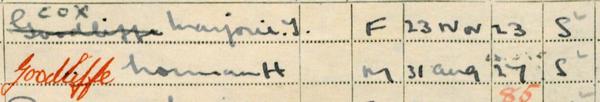 COX
Goodliffe Marjorie. J. F 23 Nov 23 S
Goodliffe Norman H M 31 Aug 27 S
85